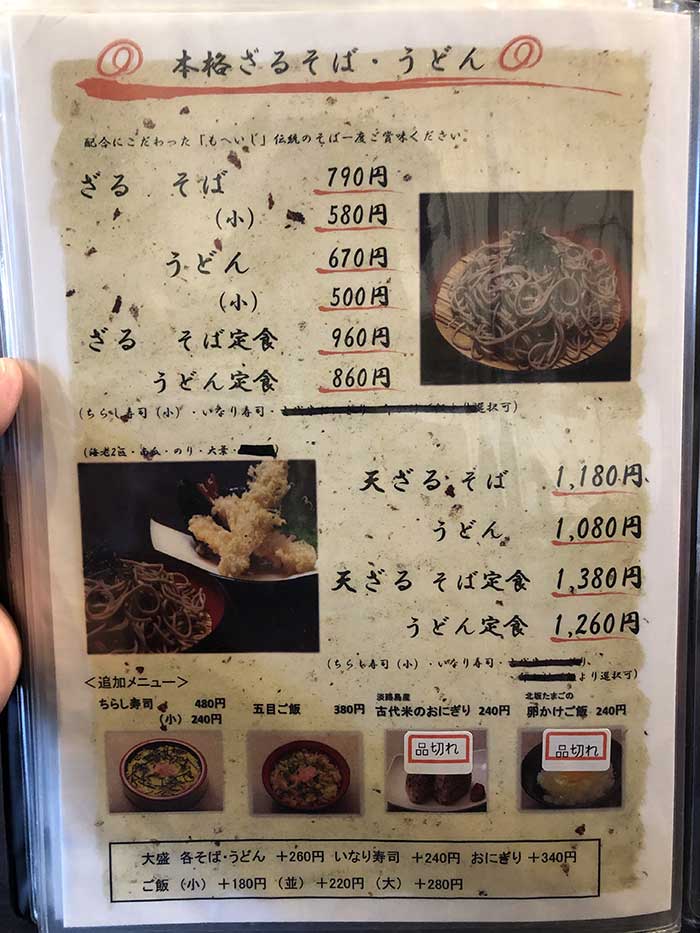 本格ざるそば・うどん
配合にこだわった「もへいじ」伝統のそば一度ご賞味ください。
ざる そば 790円
(小) 580円
うどん 670円
(小) 500円
ざる そば定食 960円
うどん定食 860円
(ちらし寿司(小)・いなり寿司・選択可)
(海老2匹・南瓜・のり・大葉・)
天ざる そば 1,180円
うどん 1,080円
天ざる そば定食 1,380円
うどん定食 1,260円
(ちらし寿司(小)・いなり寿司・
より選択可)
<追加メニュー>
ちらし寿司 480円
(小) 240円
五目ご飯 380円
淡路島産
古代米のおにぎり 240円
北坂たまごの
卵かけご飯 240円
品切れ
品切れ
大盛 各そば・うどん +260円 いなり寿司 +240円 おにぎり +340円
ご飯 (小) +180円 (並) +220円 (大) +280円